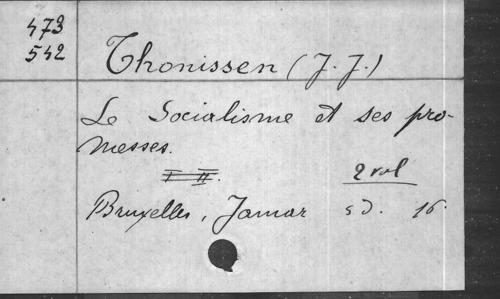 473
542
Thonissen (J. J.)
Le Socialisme et ses pro-
messes.
I II.
2 vol
Bruxelles, Jamar s d. 16.